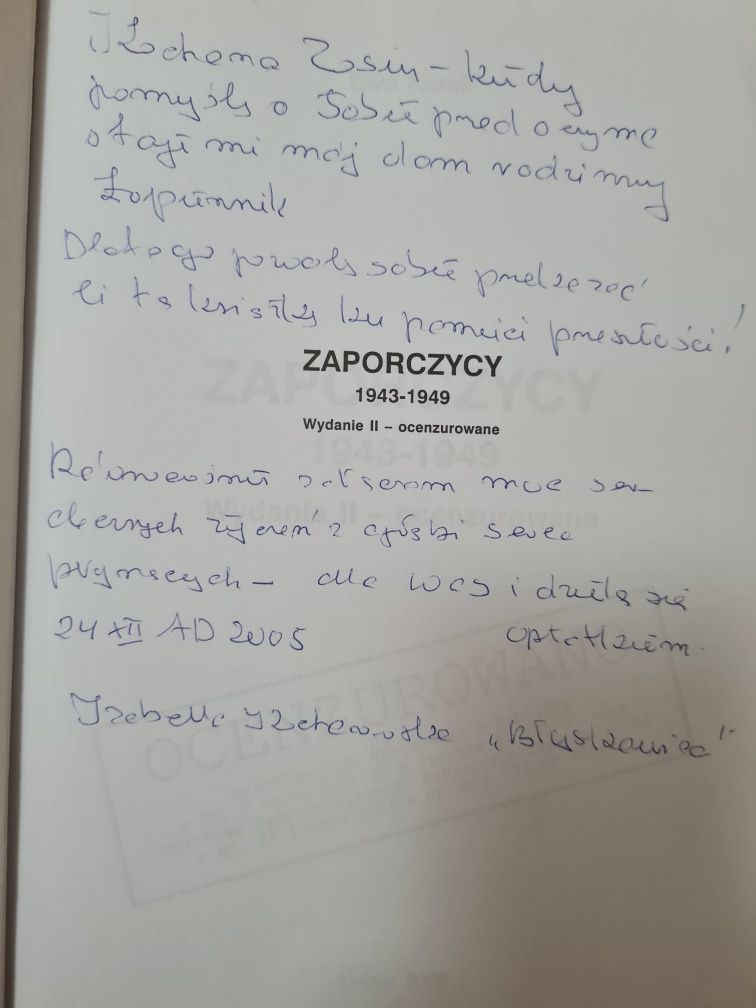 Kochana Zosiu – kiedy
pomyślę o Tobie przed oczyma
staje mi mój dom rodzinny
Łopiennik
Dlatego pozwolę sobie przekazać
Ci tę książkę ku pamięci przeszłości!
ZAPORCZYCY
1943-1949
Wydanie II – ocenzurowane
Równocześnie moc ser-
decznych życzeń z głębi serca
płynących – dla Was i dzielę się
24 XII AD 2005 opłatkiem.
Izabella "Błyskawica"
OCENZUROWANO